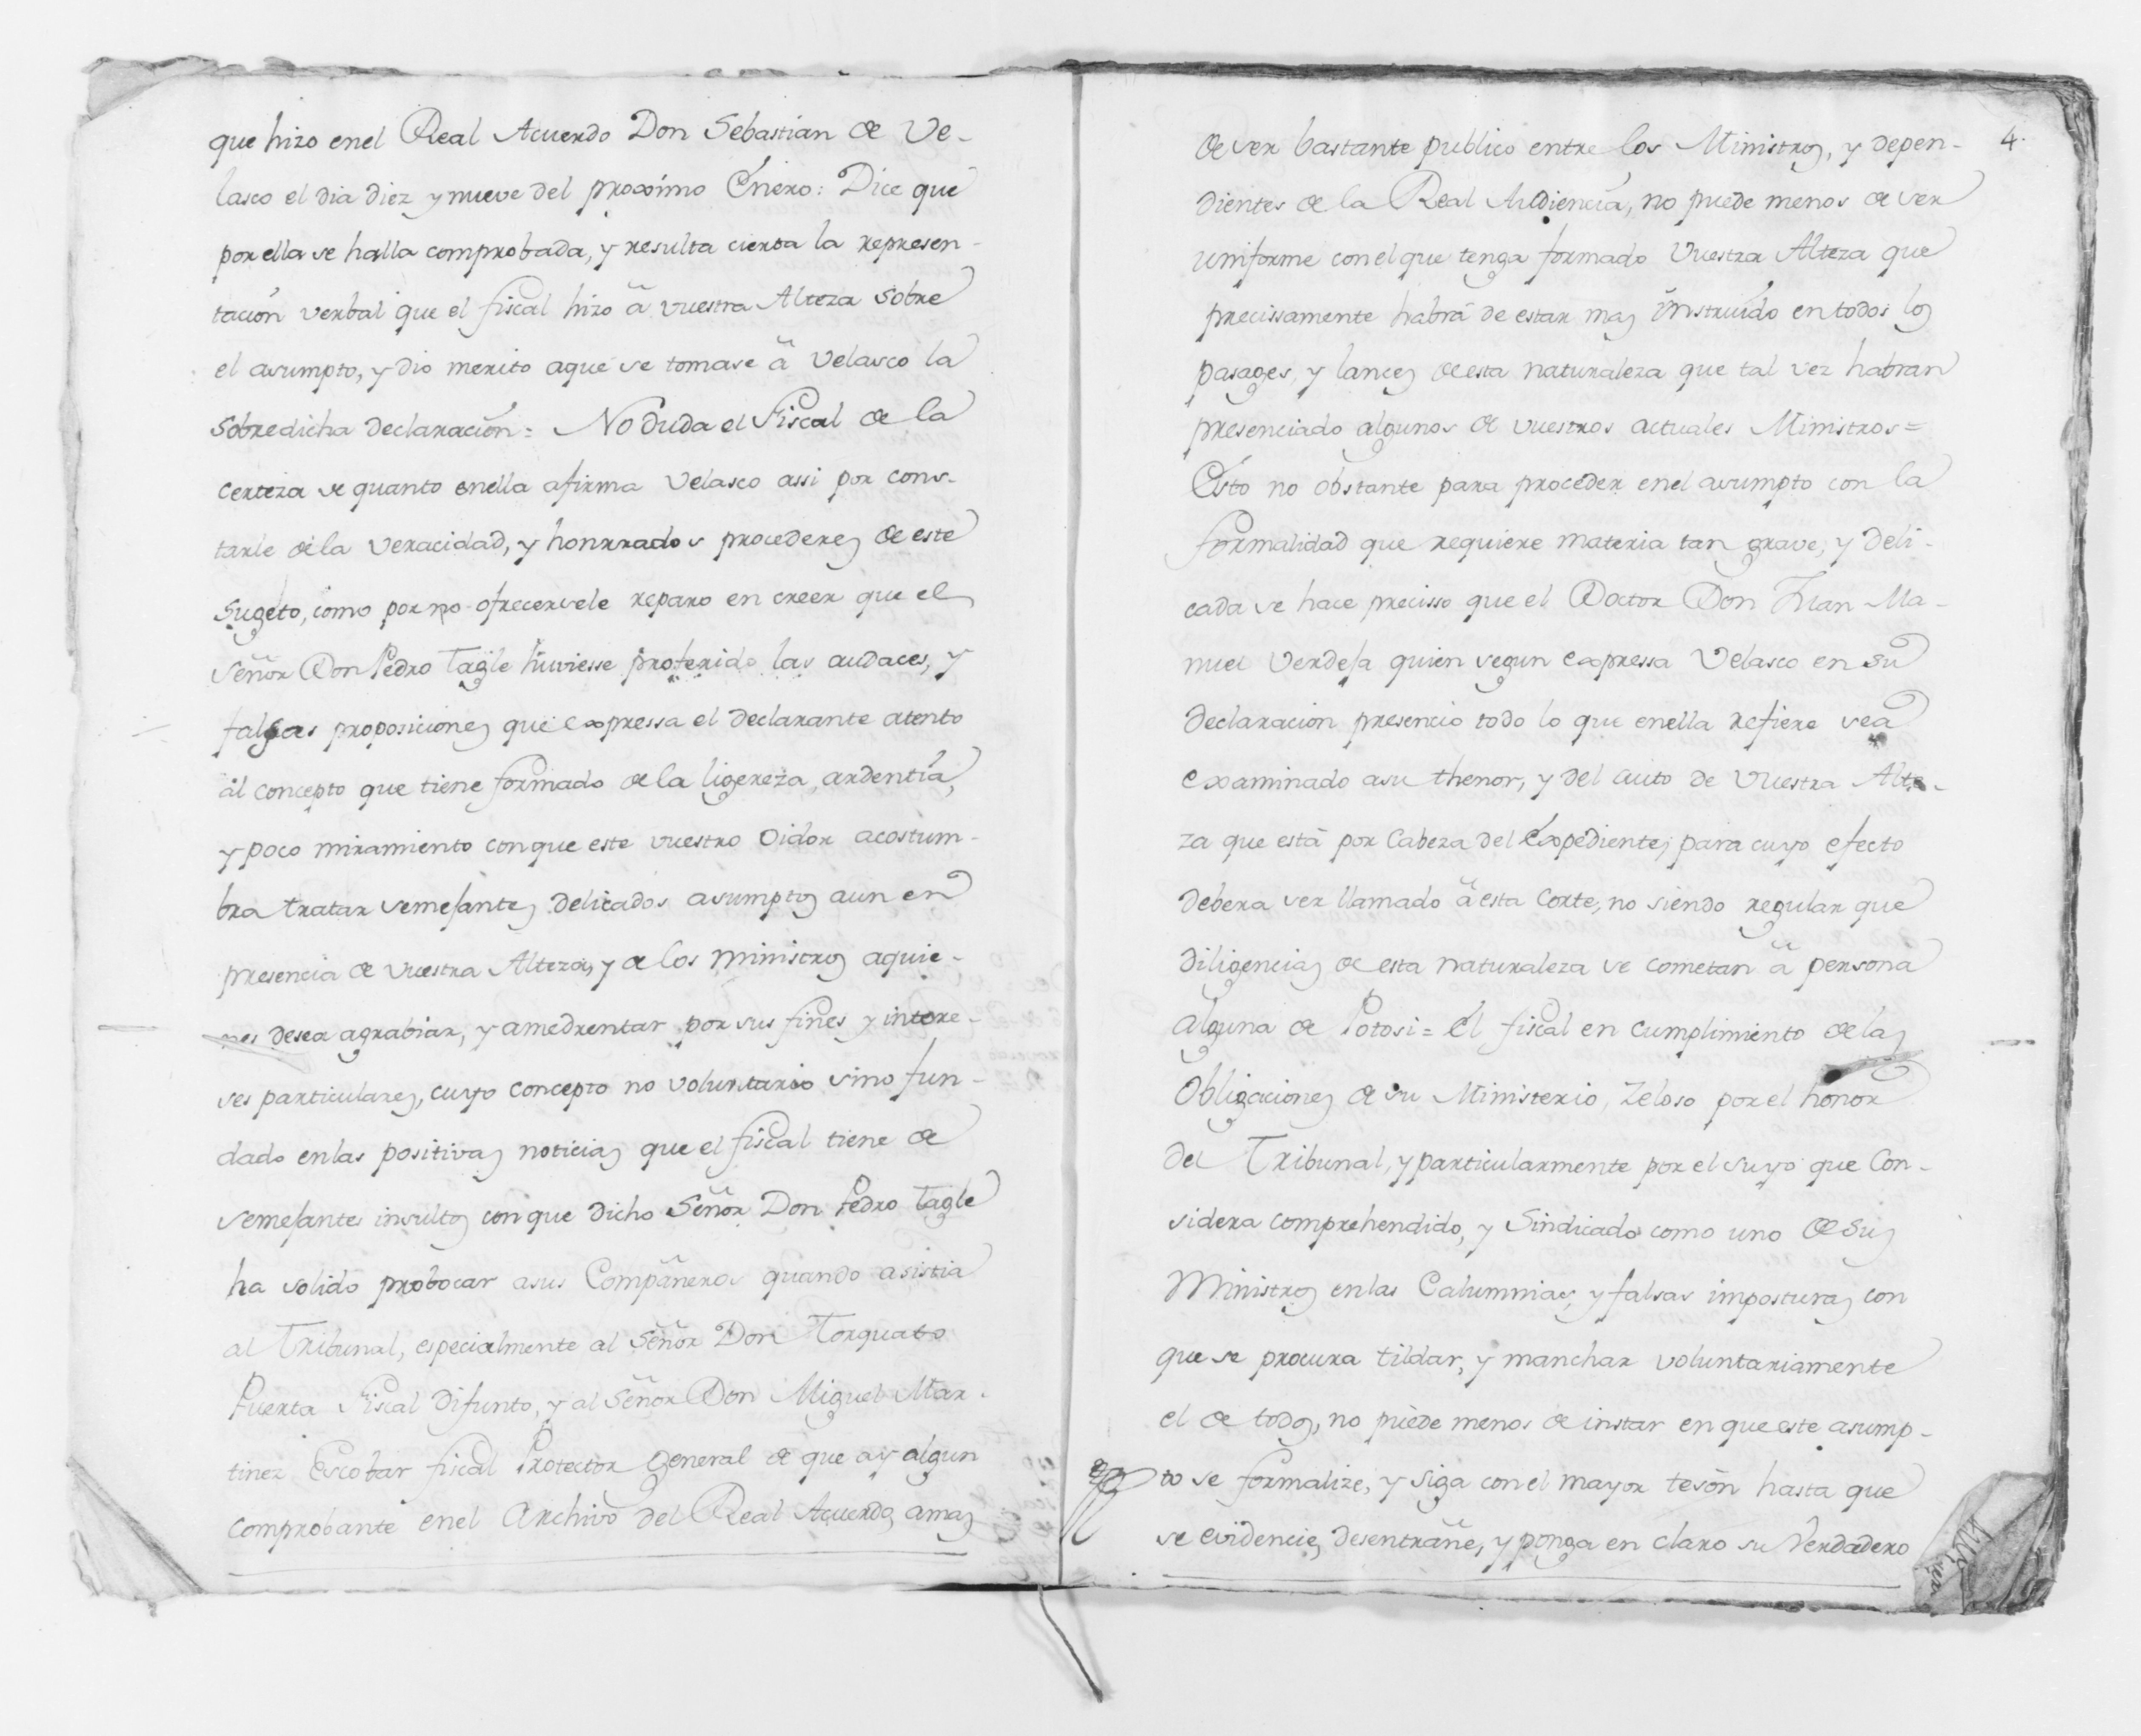 que hizo enel Real Acuerdo Don Sebastian de Ve-
lasco el dia diez y nueve del proximo Enero: Dice que
por ella se halla comprobada, y resulta cierta la represen-
tacion verbal que el fiscal hizo â vuestra Alteza sobre
el asumpto, y dio merito aque se tomase â Velasco la
sobredicha declaracion = No duda el Fiscal de la
certeza de quanto enella afirma Velasco assi por cons-
tarle dela veracidad, y honrrados procederes de este
sugeto, como por no ofrecersele reparo en creer que el
Señor Don Pedro Tagle huviesse proferido las audaces, y
falsas proposiciones que expressa el declarante atento
al concepto que tiene formado de la ligereza, ardentia,
y poco miramiento conque este vuestro Oidor acostum-
bra tratar semejantes delicados asumptos aun en
presencia de vuestra Alteza, y de los Ministros aquie-
nes desea agrabiar, y amedrentar por sus fines y intere-
ses particulares, cuyo concepto no voluntario sino fun-
dado enlas positivas noticias que el fiscal tiene de
semejantes insultos con que dicho Señor Don Pedro Tagle
ha solido probocar asus Compañeros quando asistia
al Tribunal, especialmente al Señor Don Torquato
Puerta Fiscal difunto, y al Señor Don Miguel Mar-
tinez Escobar fiscal Protector General de que ay algun
comprobante enel Archivo del Real Acuerdo, amas
4.
de ser bastante publico entre los Ministros, y depen-
dientes de la Real Audiencia, no puede menos de ser
uniforme con el que tenga formado Vuestra Alteza que
precissamente habrâ de estar mas instruido en todos los
pasages, y lances de esta naturaleza que tal vez habran
presenciado algunos de vuestros actuales Ministros =
Esto no obstante para proceder enel asumpto con la
formalidad que requiere materia tan grave, y deli-
cada se hace precisso que el Doctor Don Juan Ma-
nuel Verdeja quien segun expressa Velasco en su
declaracion presencio todo lo que enella refiere sea
examinado asu thenor, y del auto de Vuestra Alte-
za que está por Cabeza del Expediente; para cuyo efecto
debera ser llamado â esta Corte, no siendo regular que
diligencias de esta naturaleza se cometan â persona
alguna de Potosi = El fiscal en cumplimiento de las
Obligaciones de su Ministerio, Zeloso por el honor
del Tribunal, y particularmente por el suyo que Con-
sidera comprehendido, y Sindicado como uno de sus
Ministros enlas Calumnias, y falsas imposturas con
que se procura tildar, y manchar voluntariamente
el de todos, no puede menos de instar en que este asump-
to se formalize, y siga con el mayor tesón hasta que
se evidencie, desentrañe, y ponga en claro su Verdadero